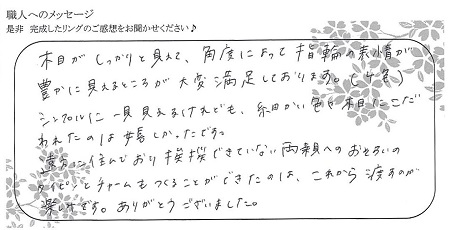 職人へのメッセージ
是非 完成したリングのご感想をお聞かせください♪
木目がしっかりと見えて、角度によって指輪の表情が
豊かに見えるところが大変満足しております。(4色)
シンプルに一見見えるけれども、細かい色や木目にこだ
われたのは嬉しかったです。
遠方に住んでおり挨拶できていない両親へのおそろいの
タイピンとチャームもつくることができたのは、これから渡すのが
楽しみです。ありがとうございました。